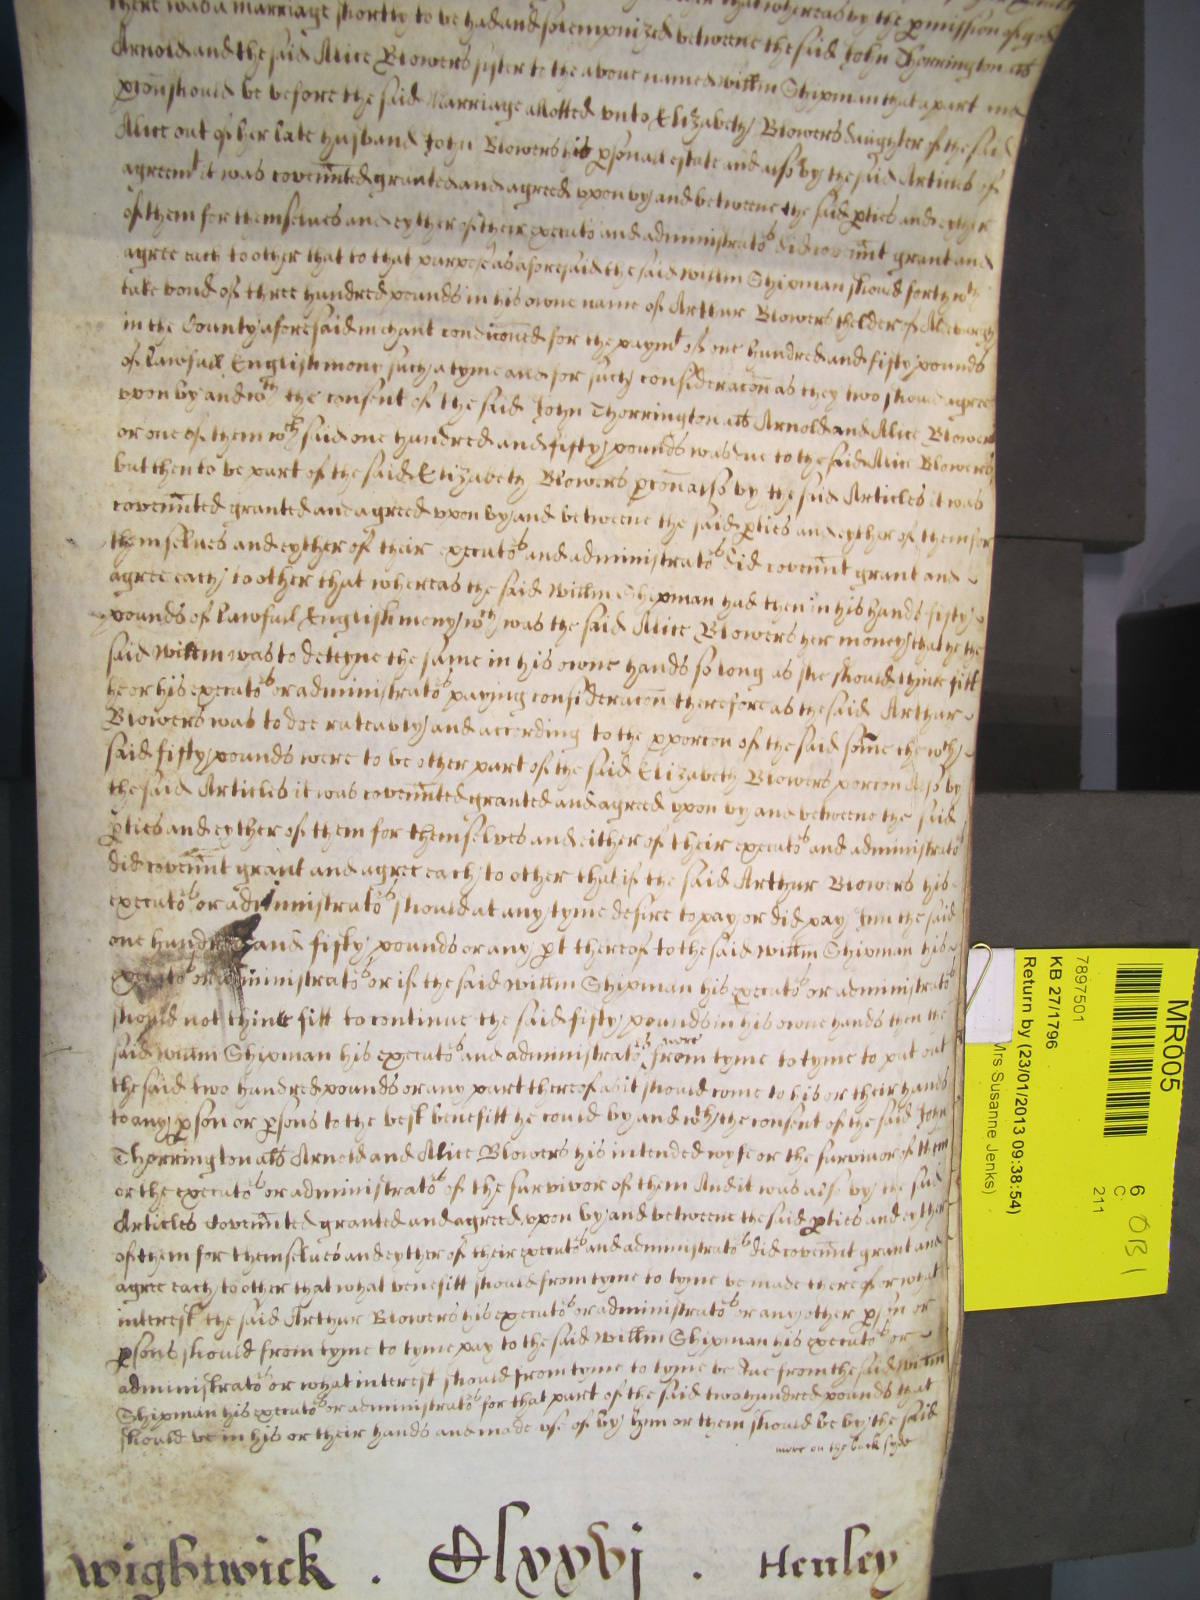 there was a marriage shortly to be had and solempnized betweene the said John Thorrington als
Arnold and the said Alice Blowers sister to the above named Willm Shipman that a part and
porcon should be before the said Marriage allotted unto Elizabeth Blowers daughter of the said
Alice out of her late husband John Blowers his psonall estate and also by the said Articles of
agreemt it was covennted granted and agreed upon by and betweene the said pties and eyther
of them for themselves and eyther of their executors and administrators did covennt grant and
agree each to other that to that purpose as aforesaid the said Willm Shipman should forthwth
take bond of three hundred pounds in his owne name of Arthur Blowers thelder of
in the County aforesaid mchant condiconed for the paymt of one hundred and fifty pounds
of lawfull English mony such a tyme and for such consideracon as they two should agree
upon by and wth the consent of the said John Thorrington als Arnold and Alice Blowers
or one of them wch said one hundred and fifty pounds was due to the said Alice Blowers
but then to be part of the said Elizabeth Blowers porcon also by the said Articles it was
covennted granted and agreed upon by and betweene the said pties and eyther of them for
themselves and eyther of their executors and administrators did covennt grant and
agree each to other that whereas the said Willm Shipman had then in his hands fifty
pounds of lawfull English mony wch was the said Alice Blowers her money that he the
said Willm was to deteyne the same in his owne hands so long as she should thinke fitt
he or his executors or administrators paying consideracon therefore as the said Arthur
Blowers was to doe rateably and according to the pporcon of the said some the wch
said fifty pounds were to be other part of the said Elizabeth Blowers porcon Also by
the said Articles it was covennted granted and agreed upon by and betweene the said
pties and eyther of them for themselves and either of their executors and administrators
did covennt grant and agree each to other that if the said Arthur Blowers his
executors or administrators should at any tyme desire to pay or did pay in the said
one hundred and fifty pounds or any pt thereof to the said Willm Shipman his
executors or administrators or if the said Willm Shipman his executors or administrators
should not thinke fitt to continue the said fifty pounds in his owne hands then the
said Willm Shipman his executors and administrators were from tyme to tyme to put out
the said two hundred pounds or any part thereof as it should come to his or their hands
to any pson or psons to the best benefitt he could by and wth the consent of the said John
Thorrington als Arnold and Alice Blowers his intended wyfe or the survivor of them
or the executors or administrators of the survivor of them And it was also by the said
Articles Covennted granted and agreed upon by and betweene the said pties and eyther
of them for themselves and eyther of their executors and administrators did covennt grant and
agree each to other that what benefitt should from tyme to tyme be made thereof or what
interest the said Arthur Blowers his executors or administrators or any other pson or
psons should from tyme to tyme pay to the said Willm Shipman his executors or
administrators or what interest should from tyme to tyme be due from the said Willm
Shipman his executors or administrators for that part of the said two hundred pounds that
should be in his or their hands and made use of by hym or them should be by the said
more on the back syde
Wightwick . Clxxvj . Henley
MR005
6
C:
211
OB 1
7897501
KB 27/1796
Return by (23/01/2013 09:38:54)
Mrs Susanne Jenks)